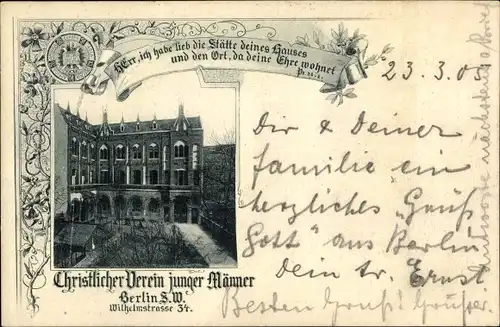 HErr, ich habe lieb die Stätte deines Hauses
und den Ort, da deine Ehre wohnet
Ps. 26. 8.
23.3.05
Dir & Deiner
familie ein
herzliches "Gruß
Gott" aus Berlin
Dein tr. Ernst.
Besten Gruß!
Christlicher Verein junger Männer
Berlin S.W.
Wilhelmstrasse 34.